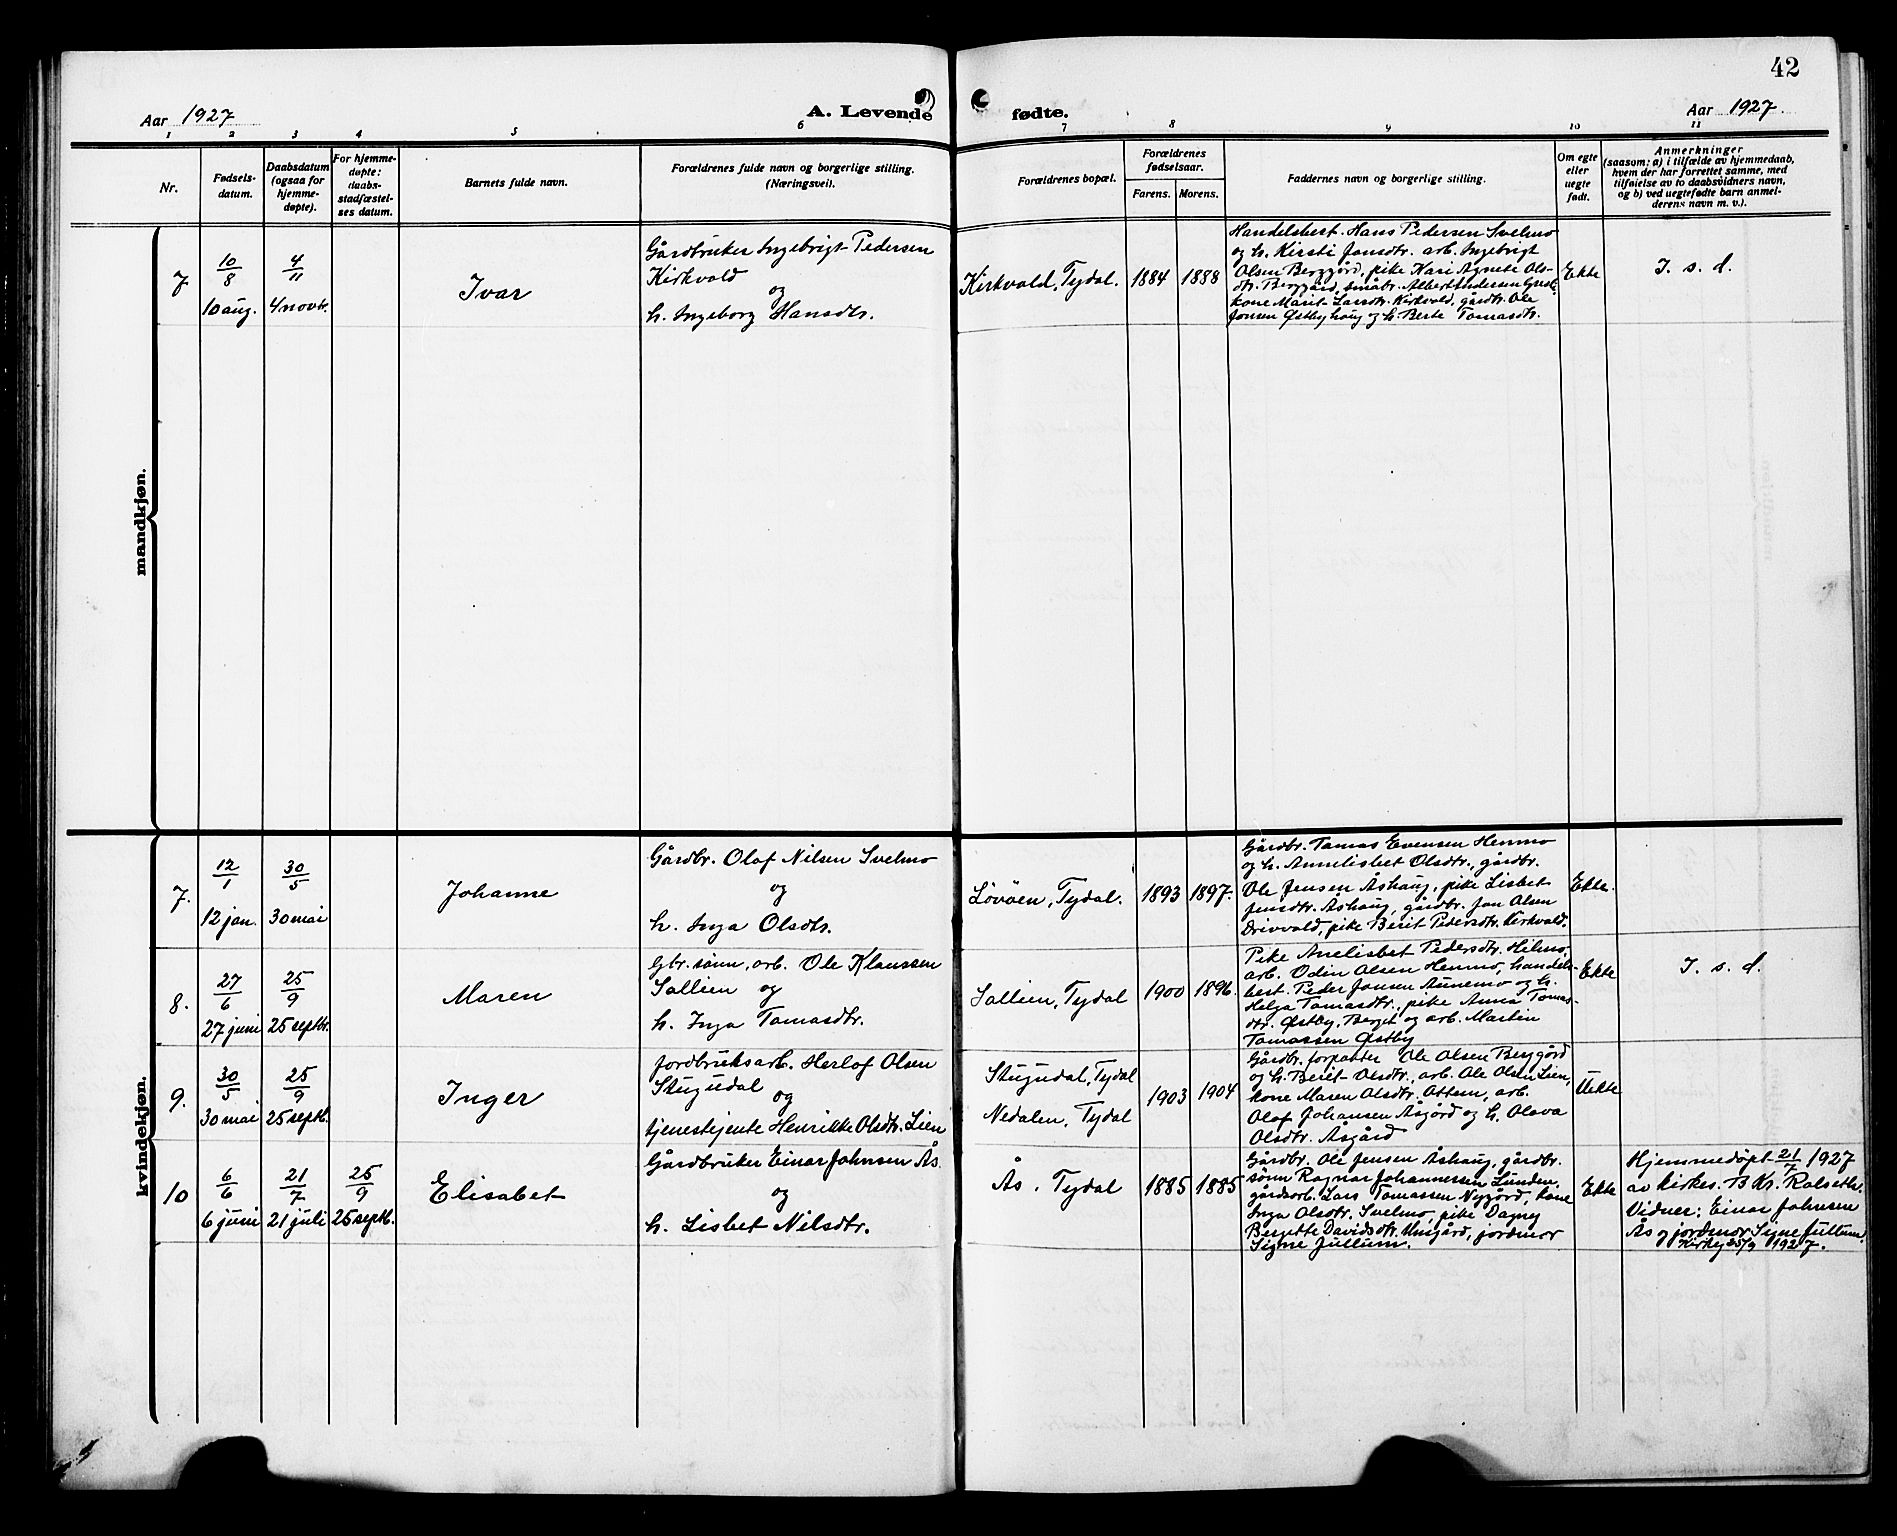 42
Aar 1927
A. Levende fødte.
Aar 1927.
1 2 3 4 5 6 7 8 9 10 11
Nr.
Fødsels-
datum.
Daabsdatum
(ogsaa for
hjemme-
døpte).
For hjemme-
døpte:
daabs-
stadfæstel-
ses datum.
Barnets fulde navn.
Forældrenes fulde navn og borgerlige stilling.
(Næringsvei).
Forældrenes bopæl.
Forældrenes
fødselsaar.
Farens. Morens.
Faddernes navn og borgerlige stilling.
Om egte
eller
uegte
født.
Anmerkninger
(saasom: a) i tilfælde av hjemmedaab,
hvem der har forrettet samme, med
tilføielse av to daabsvidners navn,
og b) ved uegtefødte barn anmel-
derens navn m. v.).
mandkjøn.
7
10/8
10 aug.
4/11
4 novbr.
Ivar
Gårdbruker Ingebrigt Pedersen
Kirkvold
og
h. Ingeborg Hansdtr.
Kirkvold, Tydal.
1884
1888
Handelsbest. Hans Pedersen Svelmo
og h. Kirsti Jonsdtr. arb. Ingebrigt
Olsen Berggård, pike Kari Agnete Ols-
dtr. Berggård, småbr. Albert Andersen
kone Marit Larsdtr. Kirkvold, gårdbr. Ole
Jonsen Østbyhaug og h. Berte Tomasdtr.
Ekte
I. s. d.
kvindekjøn.
7.
12/1
12 jan.
30/5
30 mai
Johanne
Gårdbr. Olaf Nilsen Svelmo
og
h. Inga Olsdtr.
Løvøen, Tydal.
1893
1897.
Gårdbr. Tomas Evensen Henmo
og h. Annelisbet Olsdtr., gårdbr.
Ole Jensen Åshaug, pike Lisbet
Jensdtr. Åshaug, gårdbr. Jon Olsen
Drivvold, pike Berit Pedersdtr. Kirkvold.
Ekte.
8.
27/6
27 juni
25/9
25 septbr.
Maren
Gbr. sønn, arb. Ole Klaussen
Sallien og
h. Inga Tomasdtr.
Sallien, Tydal
1900
1896.
Pike Anelisbet Pedersdtr. Hilmo,
arb. Odin Olsen Henmo, handels-
best. Peder Jonsen Aunemo og h.
Helga Tomasdtr., pike Anna Tomas-
dtr. Østby, Berget og arb. Martin
Tomassen Østby
Ekte
I. s. d.
9.
30/5
30 mai
25/9
25 septb.
Inger
Jordbruksarb. Herlof Olsen
Stugudal
og
tjenestejente Henrikke Olsdtr. Lien
Stugudal, Tydal
Nedalen, Tydal
1903
1904
Gårdbr. forpakter Ole Olsen Berggård
og h. Berit Olsdtr., arb. Ole Olsen Lien,
kone Maren Olsdtr. Ottem, arb.
Olof Johansen Åsgård og h. Olava
Olsdtr. Åsgård
Uekte
10
6/6
6 juni
21/7
21 juli
25/9
25 septb.
Elisabet
Gårdbruker Einar Johnsen Ås.
og
h. Lisbet Nilsdtr.
Ås, Tydal
1885
1885
Gårdbr. Ole Jensen Åshaug, gårdbr.
sønn Ragnar Johannessen Lunden,
gårdsarb. Lars Tomassen Nygård, kone
Inga Olsdtr. Svelmo, pike Dagny
Bergette Davidsdtr. jordmor
Signe Jullum.
Ekte
Hjemmedøpt 21/7 1927
av kirkes. B. Kr. Rolseth.
Vidner: Einar Johnsen
Ås og jordmor Signe Jullum.
25/9 1927.